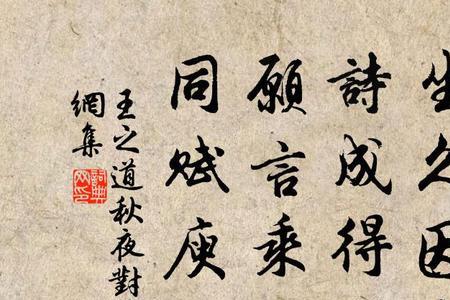 坐久因
詩成得
願言乘
同賦庾
王之道秋夜對
網集